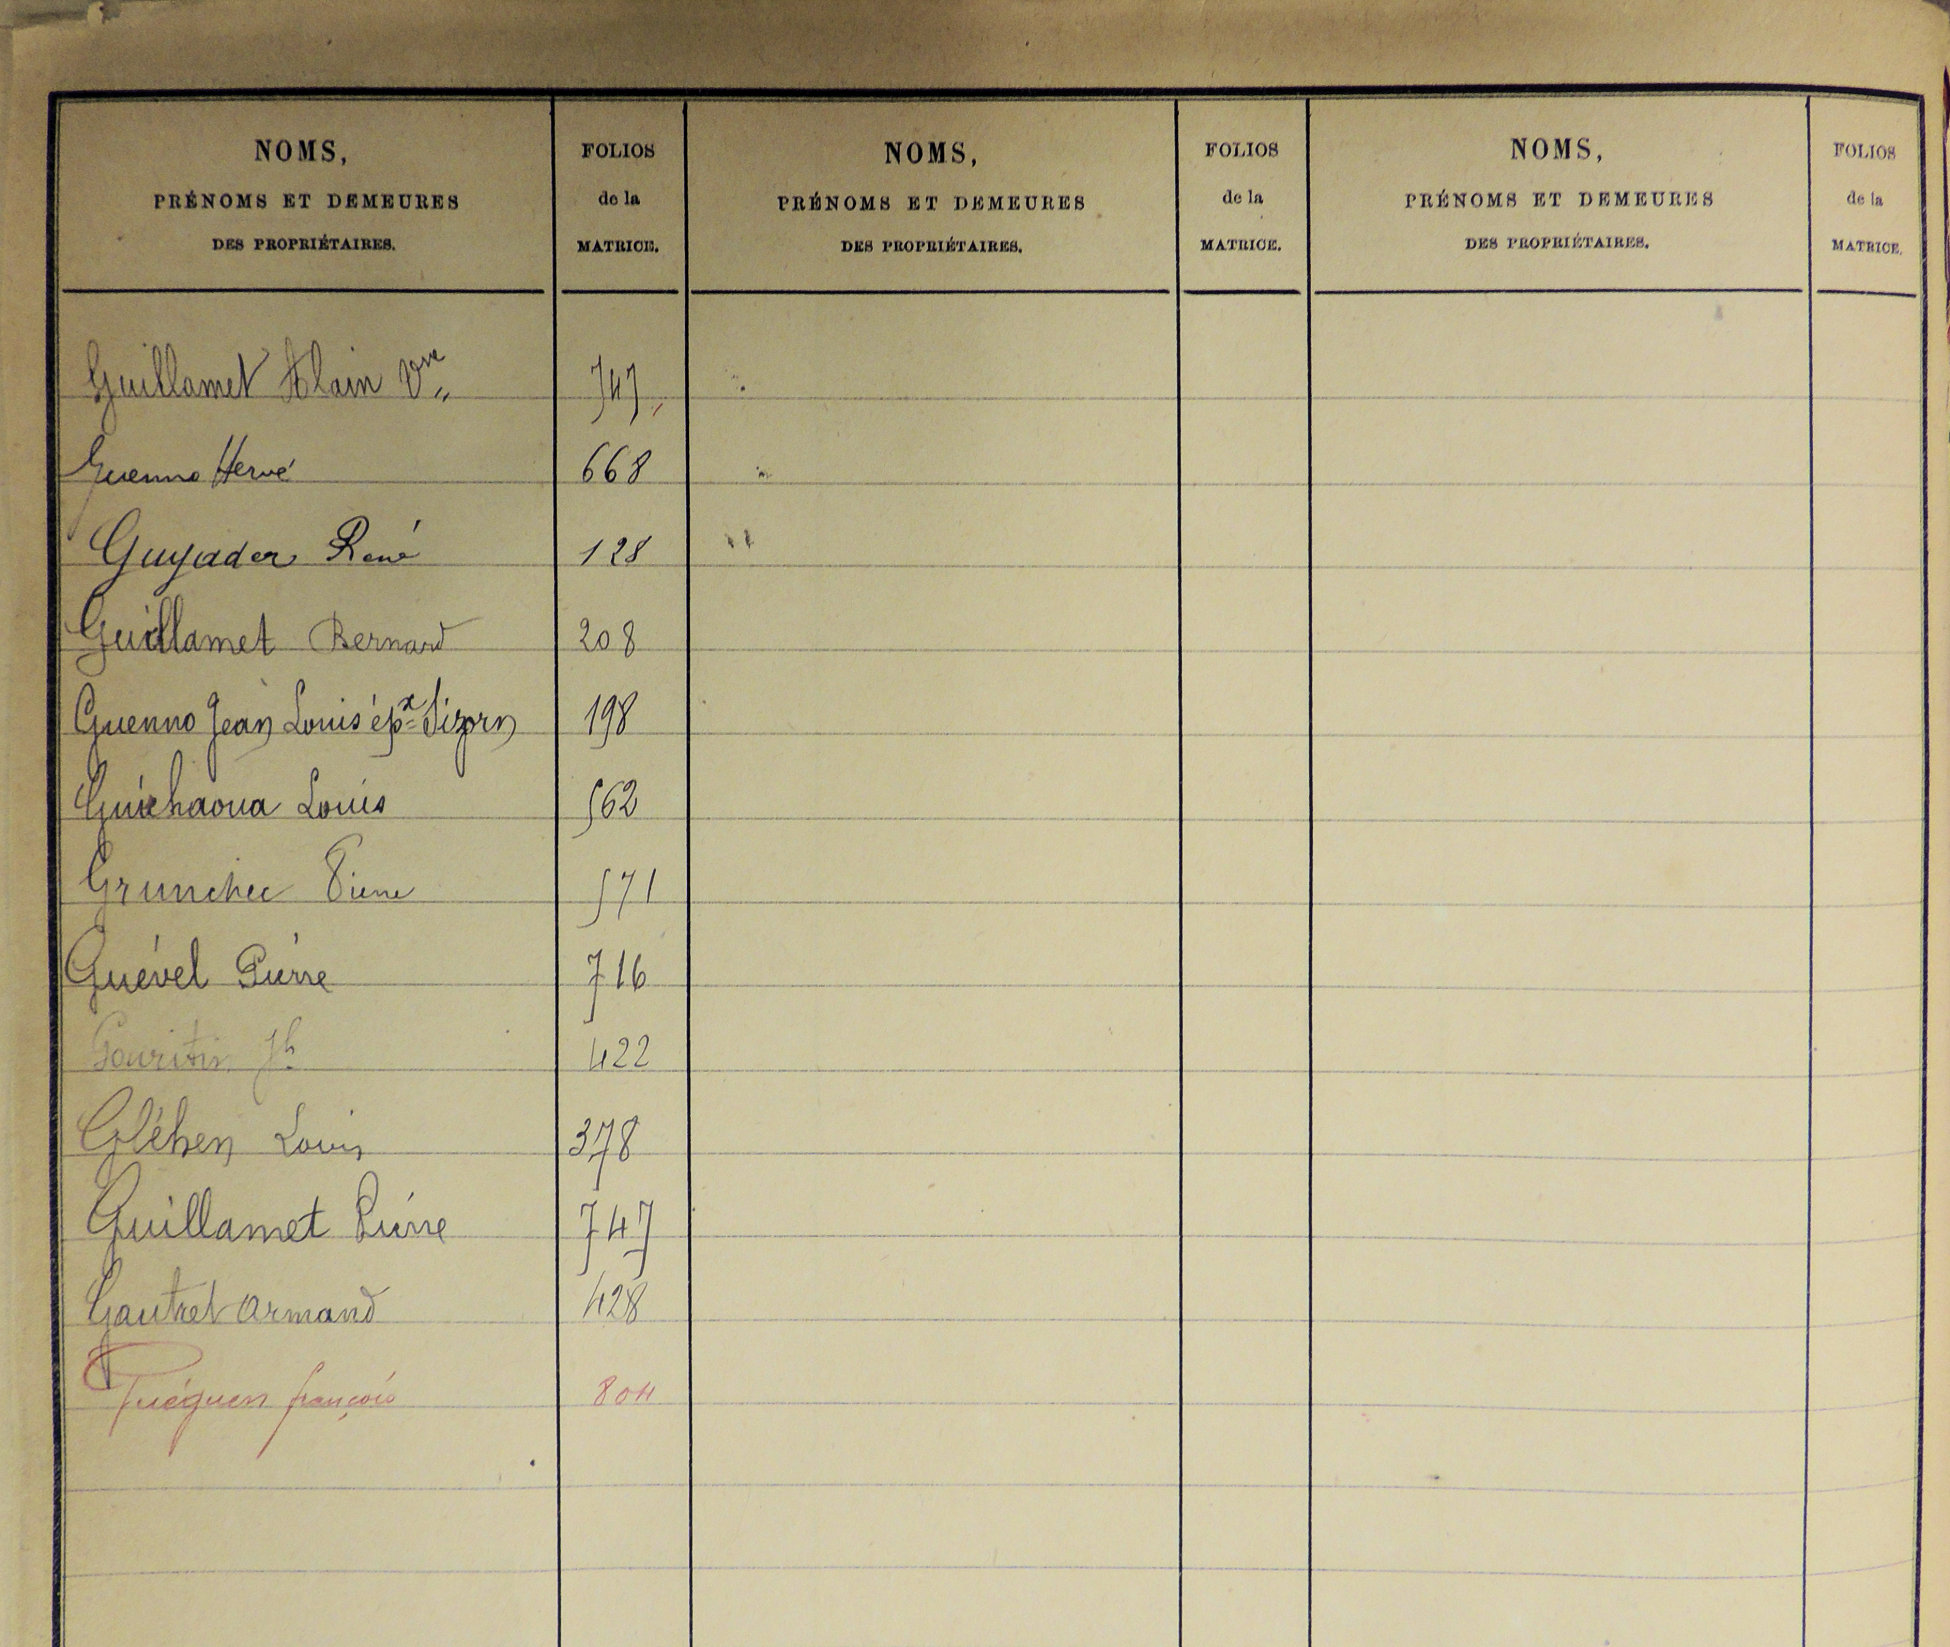 NOMS,
PRÉNOMS ET DEMEURES
DES PROPRIÉTAIRES.
FOLIOS
de la
MATRICE.
NOMS,
PRÉNOMS ET DEMEURES
DES PROPRIÉTAIRES.
FOLIOS
de la
MATRICE.
NOMS,
PRÉNOMS ET DEMEURES
DES PROPRIÉTAIRES.
FOLIOS
de la
MATRICE.
Guillamet Alain Vve 747
Guenno Hervé 668
Guyader René 128
Guillamet Bernard 208
Guenno Jean Louis épx Sizorn 198
Guichaoua Louis 562
Grunchec Pierre 571
Guével Pierre 716
Gouritin Jh 422
Gléhen Louis 378
Guillamet Pierre 747
Gautret Armand 428
Guéguen françois 804